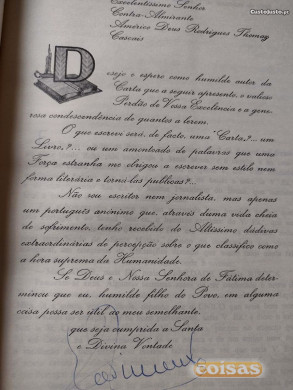 CustoJusto.pt
Excelentíssimo Senhor
Contra-Almirante
Américo Deus Rodrigues Thomaz
Cascais
Desejo e espero como humilde autor da
Carta que a seguir apresento, o valioso
Perdão de Vossa Excelência e a gene-
rosa condescendência de quantos a lerem.
O que escrevi será, de facto, uma "Carta?... um
Livro,?... ou um amontoado de palavras que uma
Força estranha me obrigou a escrever sem estilo nem
forma literária e torná-las publicas?..
Não sou escritor nem jornalista, mas apenas
um português anónimo que, através duma vida cheia
de sofrimento, tenho recebido do Altíssimo dádivas
extraordinárias de percepção sobre o que classifico como
a hora suprema da Humanidade.
Se Deus e Nossa Senhora de Fátima deter-
minou que eu, humilde filho do Povo, em alguma
coisa possa ser útil ao meu semelhante,
que seja cumprida a Santa
e Divina Vontade
coisas